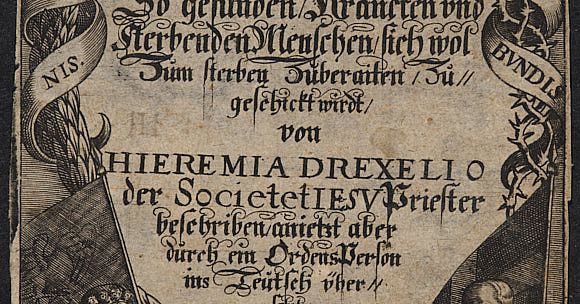 So gesunden/Krancken vnd
sterbenden Menschen/sich wol
Zum sterben Zuberaiten/Zu//
geschickt wirdt/
von
HIEREMIA DREXELIO
der Societet IESV Priester
beschriben/anietzt aber
durch ein Ordens Person
ins Teütsch vber//
NIS.
BVNDIS